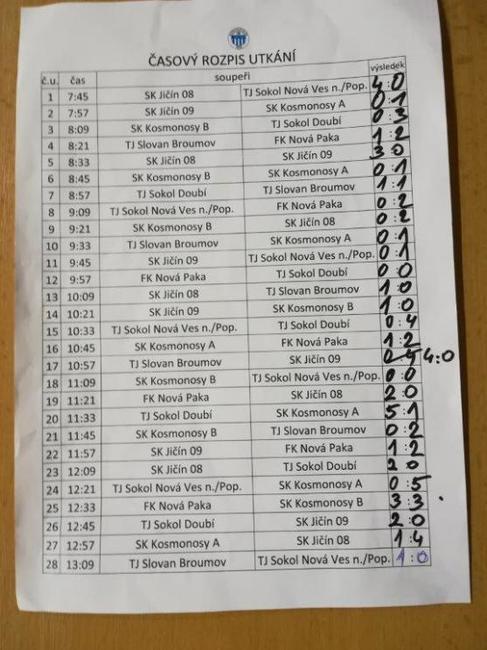 ČASOVÝ ROZPIS UTKÁNÍ
č.u. čas soupeři výsledek
1 7:45 SK Jičín 08 TJ Sokol Nová Ves n./Pop. 4:0
2 7:57 SK Jičín 09 SK Kosmonosy A 0:1
3 8:09 SK Kosmonosy B TJ Sokol Doubí 0:3
4 8:21 TJ Slovan Broumov FK Nová Paka 1:2
5 8:33 SK Jičín 08 SK Jičín 09 3:0
6 8:45 SK Kosmonosy B SK Kosmonosy A 0:1
7 8:57 TJ Sokol Doubí TJ Slovan Broumov 1:1
8 9:09 TJ Sokol Nová Ves n./Pop. FK Nová Paka 0:2
9 9:21 SK Kosmonosy B SK Jičín 08 0:2
10 9:33 TJ Slovan Broumov SK Kosmonosy A 0:1
11 9:45 SK Jičín 09 TJ Sokol Nová Ves n./Pop. 0:1
12 9:57 FK Nová Paka TJ Sokol Doubí 0:0
13 10:09 SK Jičín 08 TJ Slovan Broumov 1:0
14 10:21 SK Jičín 09 SK Kosmonosy B 1:0
15 10:33 TJ Sokol Nová Ves n./Pop. TJ Sokol Doubí 0:4
16 10:45 SK Kosmonosy A FK Nová Paka 1:2
17 10:57 TJ Slovan Broumov SK Jičín 09 4:0
18 11:09 SK Kosmonosy B TJ Sokol Nová Ves n./Pop. 0:0
19 11:21 FK Nová Paka SK Jičín 08 2:0
20 11:33 TJ Sokol Doubí SK Kosmonosy A 5:1
21 11:45 SK Kosmonosy B TJ Slovan Broumov 0:2
22 11:57 SK Jičín 09 FK Nová Paka 1:2
23 12:09 SK Jičín 08 TJ Sokol Doubí 2:0
24 12:21 TJ Sokol Nová Ves n./Pop. SK Kosmonosy A 0:5
25 12:33 FK Nová Paka SK Kosmonosy B 3:3
26 12:45 TJ Sokol Doubí SK Jičín 09 2:0
27 12:57 SK Kosmonosy A SK Jičín 08 1:4
28 13:09 TJ Slovan Broumov TJ Sokol Nová Ves n./Pop. 1:0